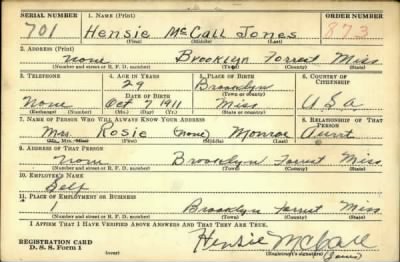 SERIAL NUMBER 1. NAME (Print) ORDER NUMBER
701 Hensie McCall Jones 873
(First) (Middle) (Last)
2. ADDRESS (Print)
none Brooklyn Forrest Miss
(Number and street or R. F. D. number) (Town) (County) (State)
3. TELEPHONE 4. AGE IN YEARS 5. PLACE OF BIRTH 6. COUNTRY OF CITIZENSHIP
29 Brooklyn
DATE OF BIRTH (Town or county)
None Oct 7 1911 Miss U.S.A
(Exchange) (Number) (Mo.) (Day) (Yr.) (State or country)
7. NAME OF PERSON WHO WILL ALWAYS KNOW YOUR ADDRESS 8. RELATIONSHIP OF THAT PERSON
Mrs. Rosie (none) Monroe Aunt
(Mr., Mrs., Miss) (First) (Middle) (Last)
9. ADDRESS OF THAT PERSON
none Brooklyn Forrest Miss.
(Number and street or R. F. D. number) (Town) (County) (State)
10. EMPLOYER'S NAME
Self
11. PLACE OF EMPLOYMENT OR BUSINESS
1 Brooklyn Forrest Miss
(Number and street or R. F. D. number) (Town) (County) (State)
I AFFIRM THAT I HAVE VERIFIED ABOVE ANSWERS AND THAT THEY ARE TRUE.
REGISTRATION CARD
D. S. S. Form 1 (over) Hensie McCall
(Registrant's signature) (Jones)